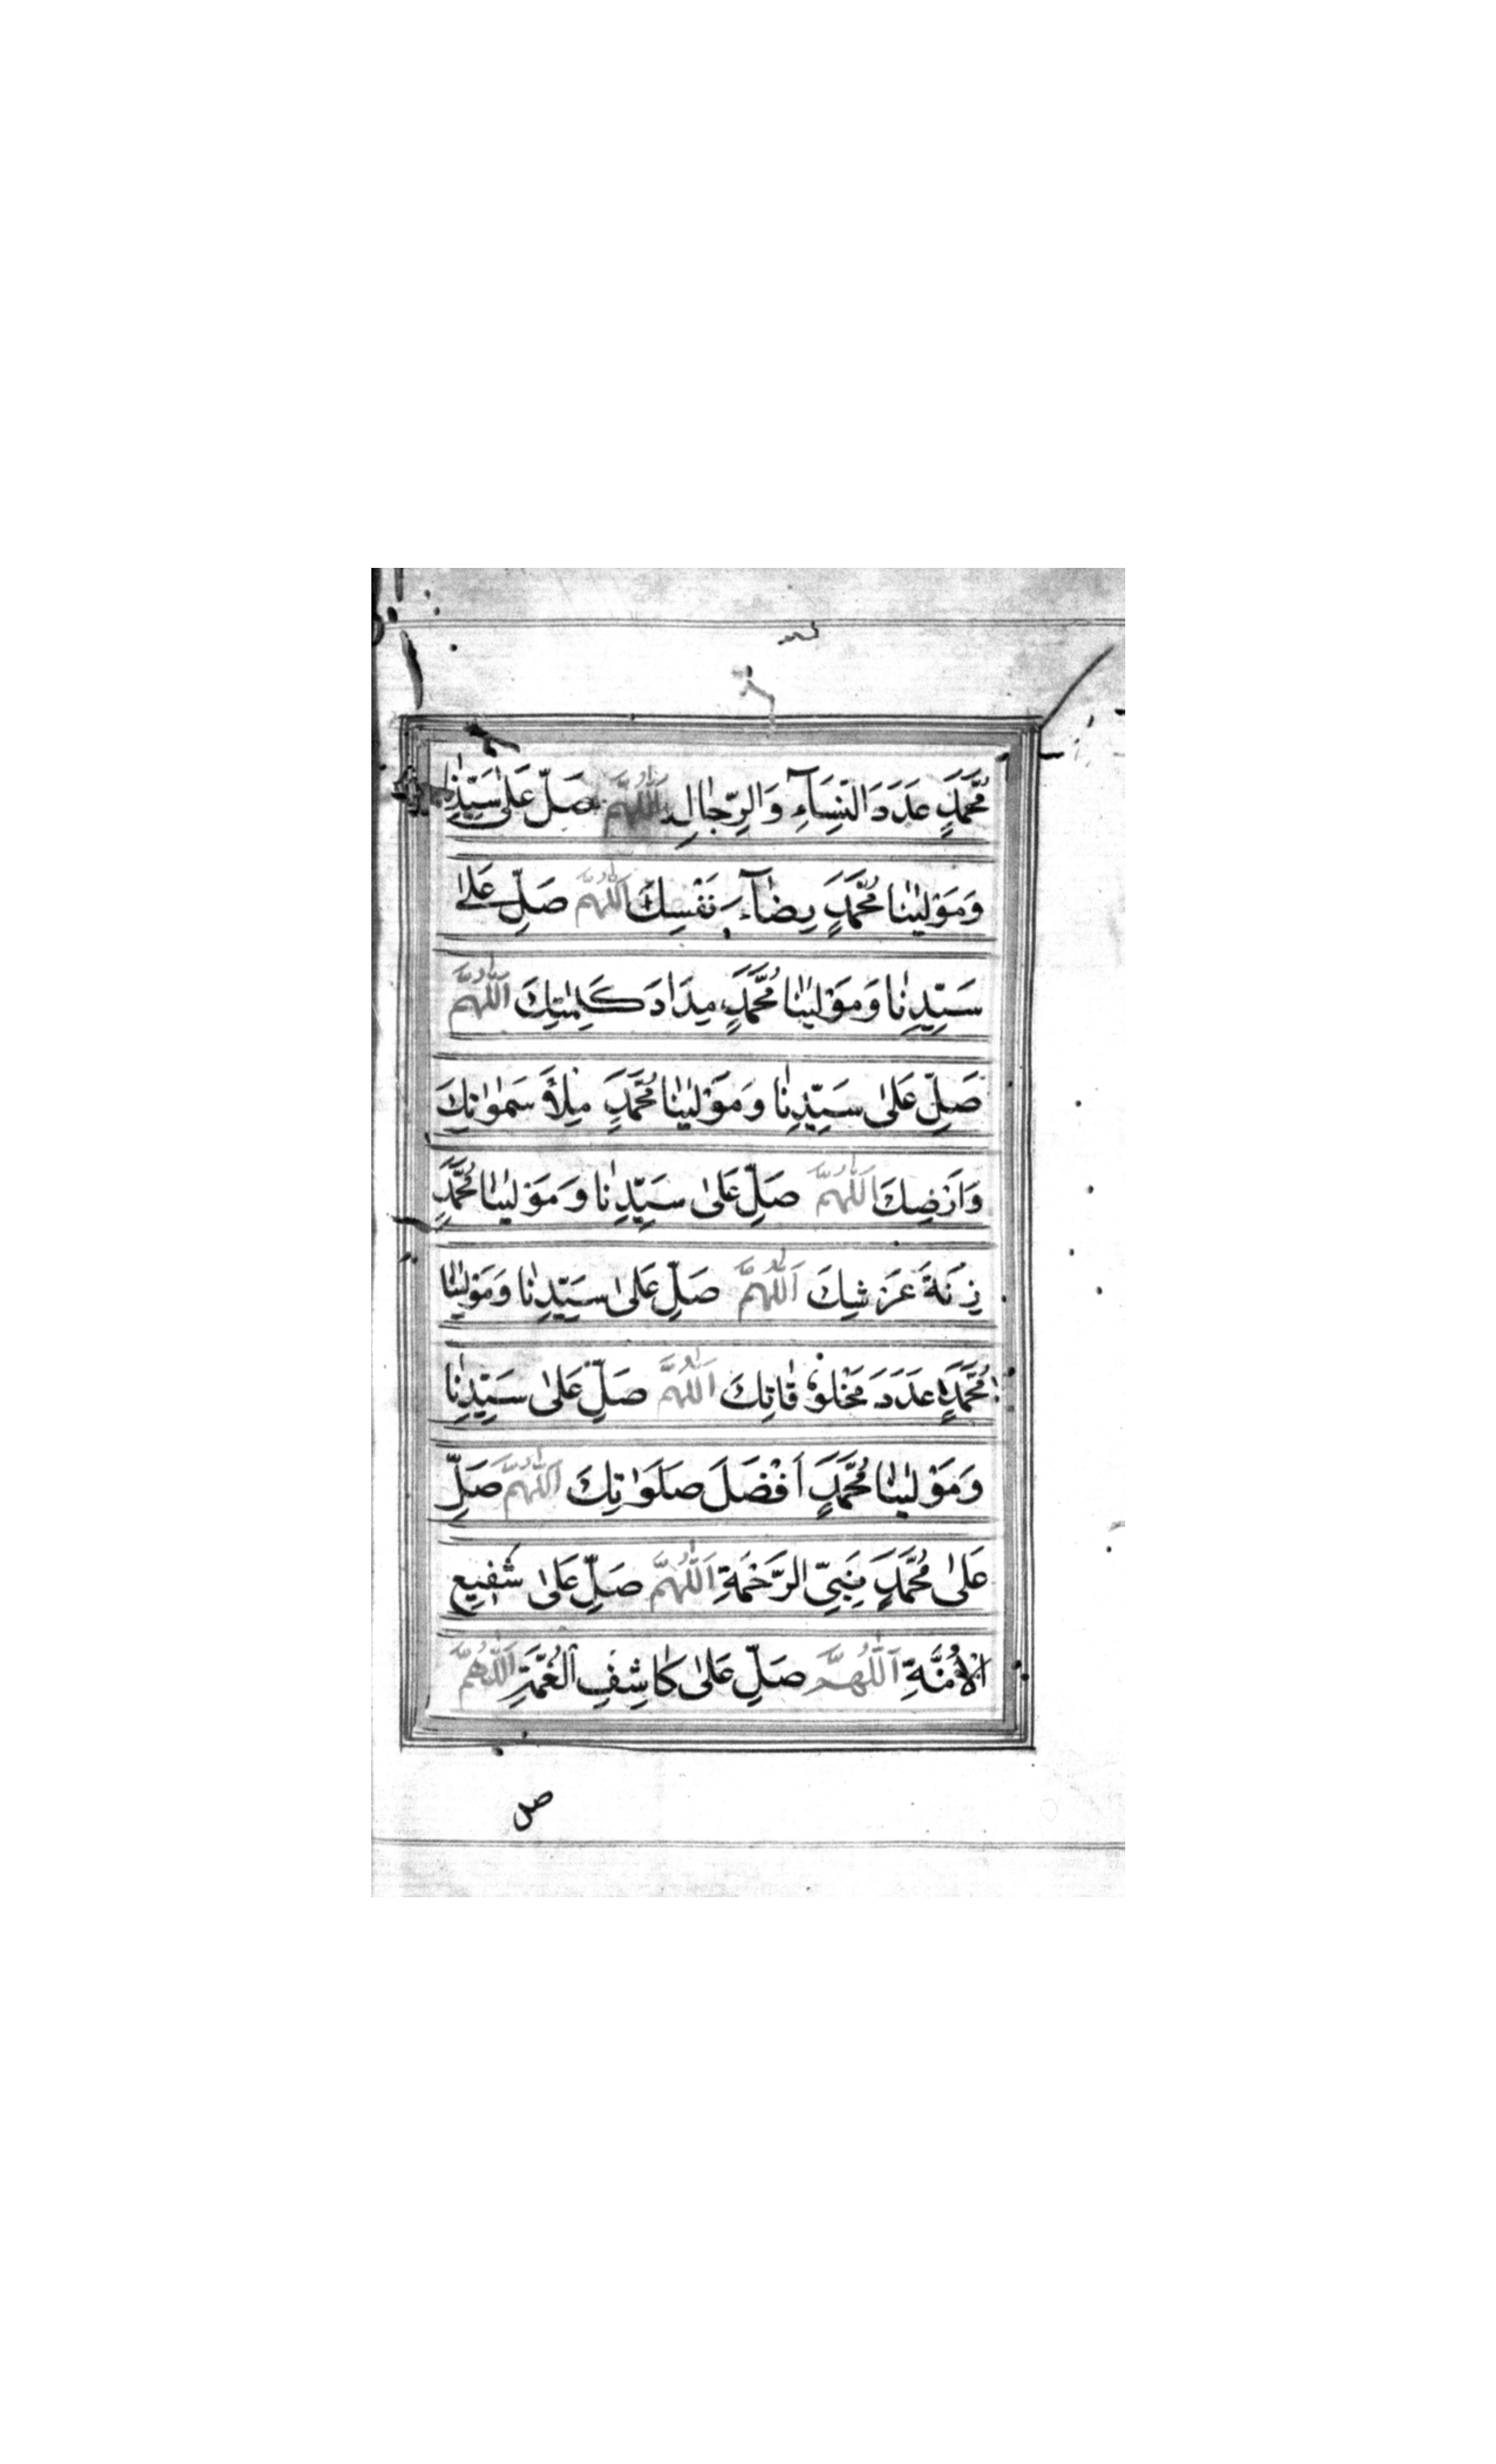 مُحَمَّدٍ عَدَدَ النِّسَآءِ وَالرِّجَالِ اَللّٰهُمَّ صَلِّ عَلٰى سَيِّدِنَا
وَمَوْلٰينَا مُحَمَّدٍ رِضَآءَ نَفْسِكَ اَللّٰهُمَّ صَلِّ عَلٰى
سَيِّدِنَا وَمَوْلٰينَا مُحَمَّدٍ مِدَادَ كَلِمٰتِكَ اَللّٰهُمَّ
صَلِّ عَلٰى سَيِّدِنَا وَمَوْلٰينَا مُحَمَّدٍ مِلْأَ سَمٰوٰتِكَ
وَاَرْضِكَ اَللّٰهُمَّ صَلِّ عَلٰى سَيِّدِنَا وَمَوْلٰينَا مُحَمَّدٍ
زِنَةَ عَرْشِكَ اَللّٰهُمَّ صَلِّ عَلٰى سَيِّدِنَا وَمَوْلٰينَا
مُحَمَّدٍ عَدَدَ مَخْلُوْقَاتِكَ اَللّٰهُمَّ صَلِّ عَلٰى سَيِّدِنَا
وَمَوْلٰينَا مُحَمَّدٍ اَفْضَلَ صَلَوٰتِكَ اَللّٰهُمَّ صَلِّ
عَلٰى مُحَمَّدٍ نَبِىِّ الرَّحْمَةِ اَللّٰهُمَّ صَلِّ عَلٰى شَفِيعِ
الْاُمَّةِ اَللّٰهُمَّ صَلِّ عَلٰى كَاشِفِ الْغُمَّةِ اَللّٰهُمَّ
صل